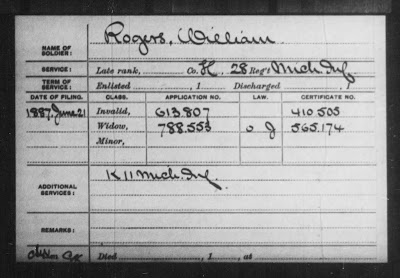 NAME OF SOLDIER: Rogers, William
SERVICE: Late rank, Co. H, 28 Reg't Mich. Inf.
TERM OF SERVICE: Enlisted , 1 Discharged , 1
DATE OF FILING. CLASS. APPLICATION NO. LAW. CERTIFICATE NO.
1887, June 21 Invalid, 613.807 410.505
Widow, 788.553 565.174
Minor,
ADDITIONAL SERVICES: K 11 Mich. Inf.
REMARKS:
Died , 1 , at